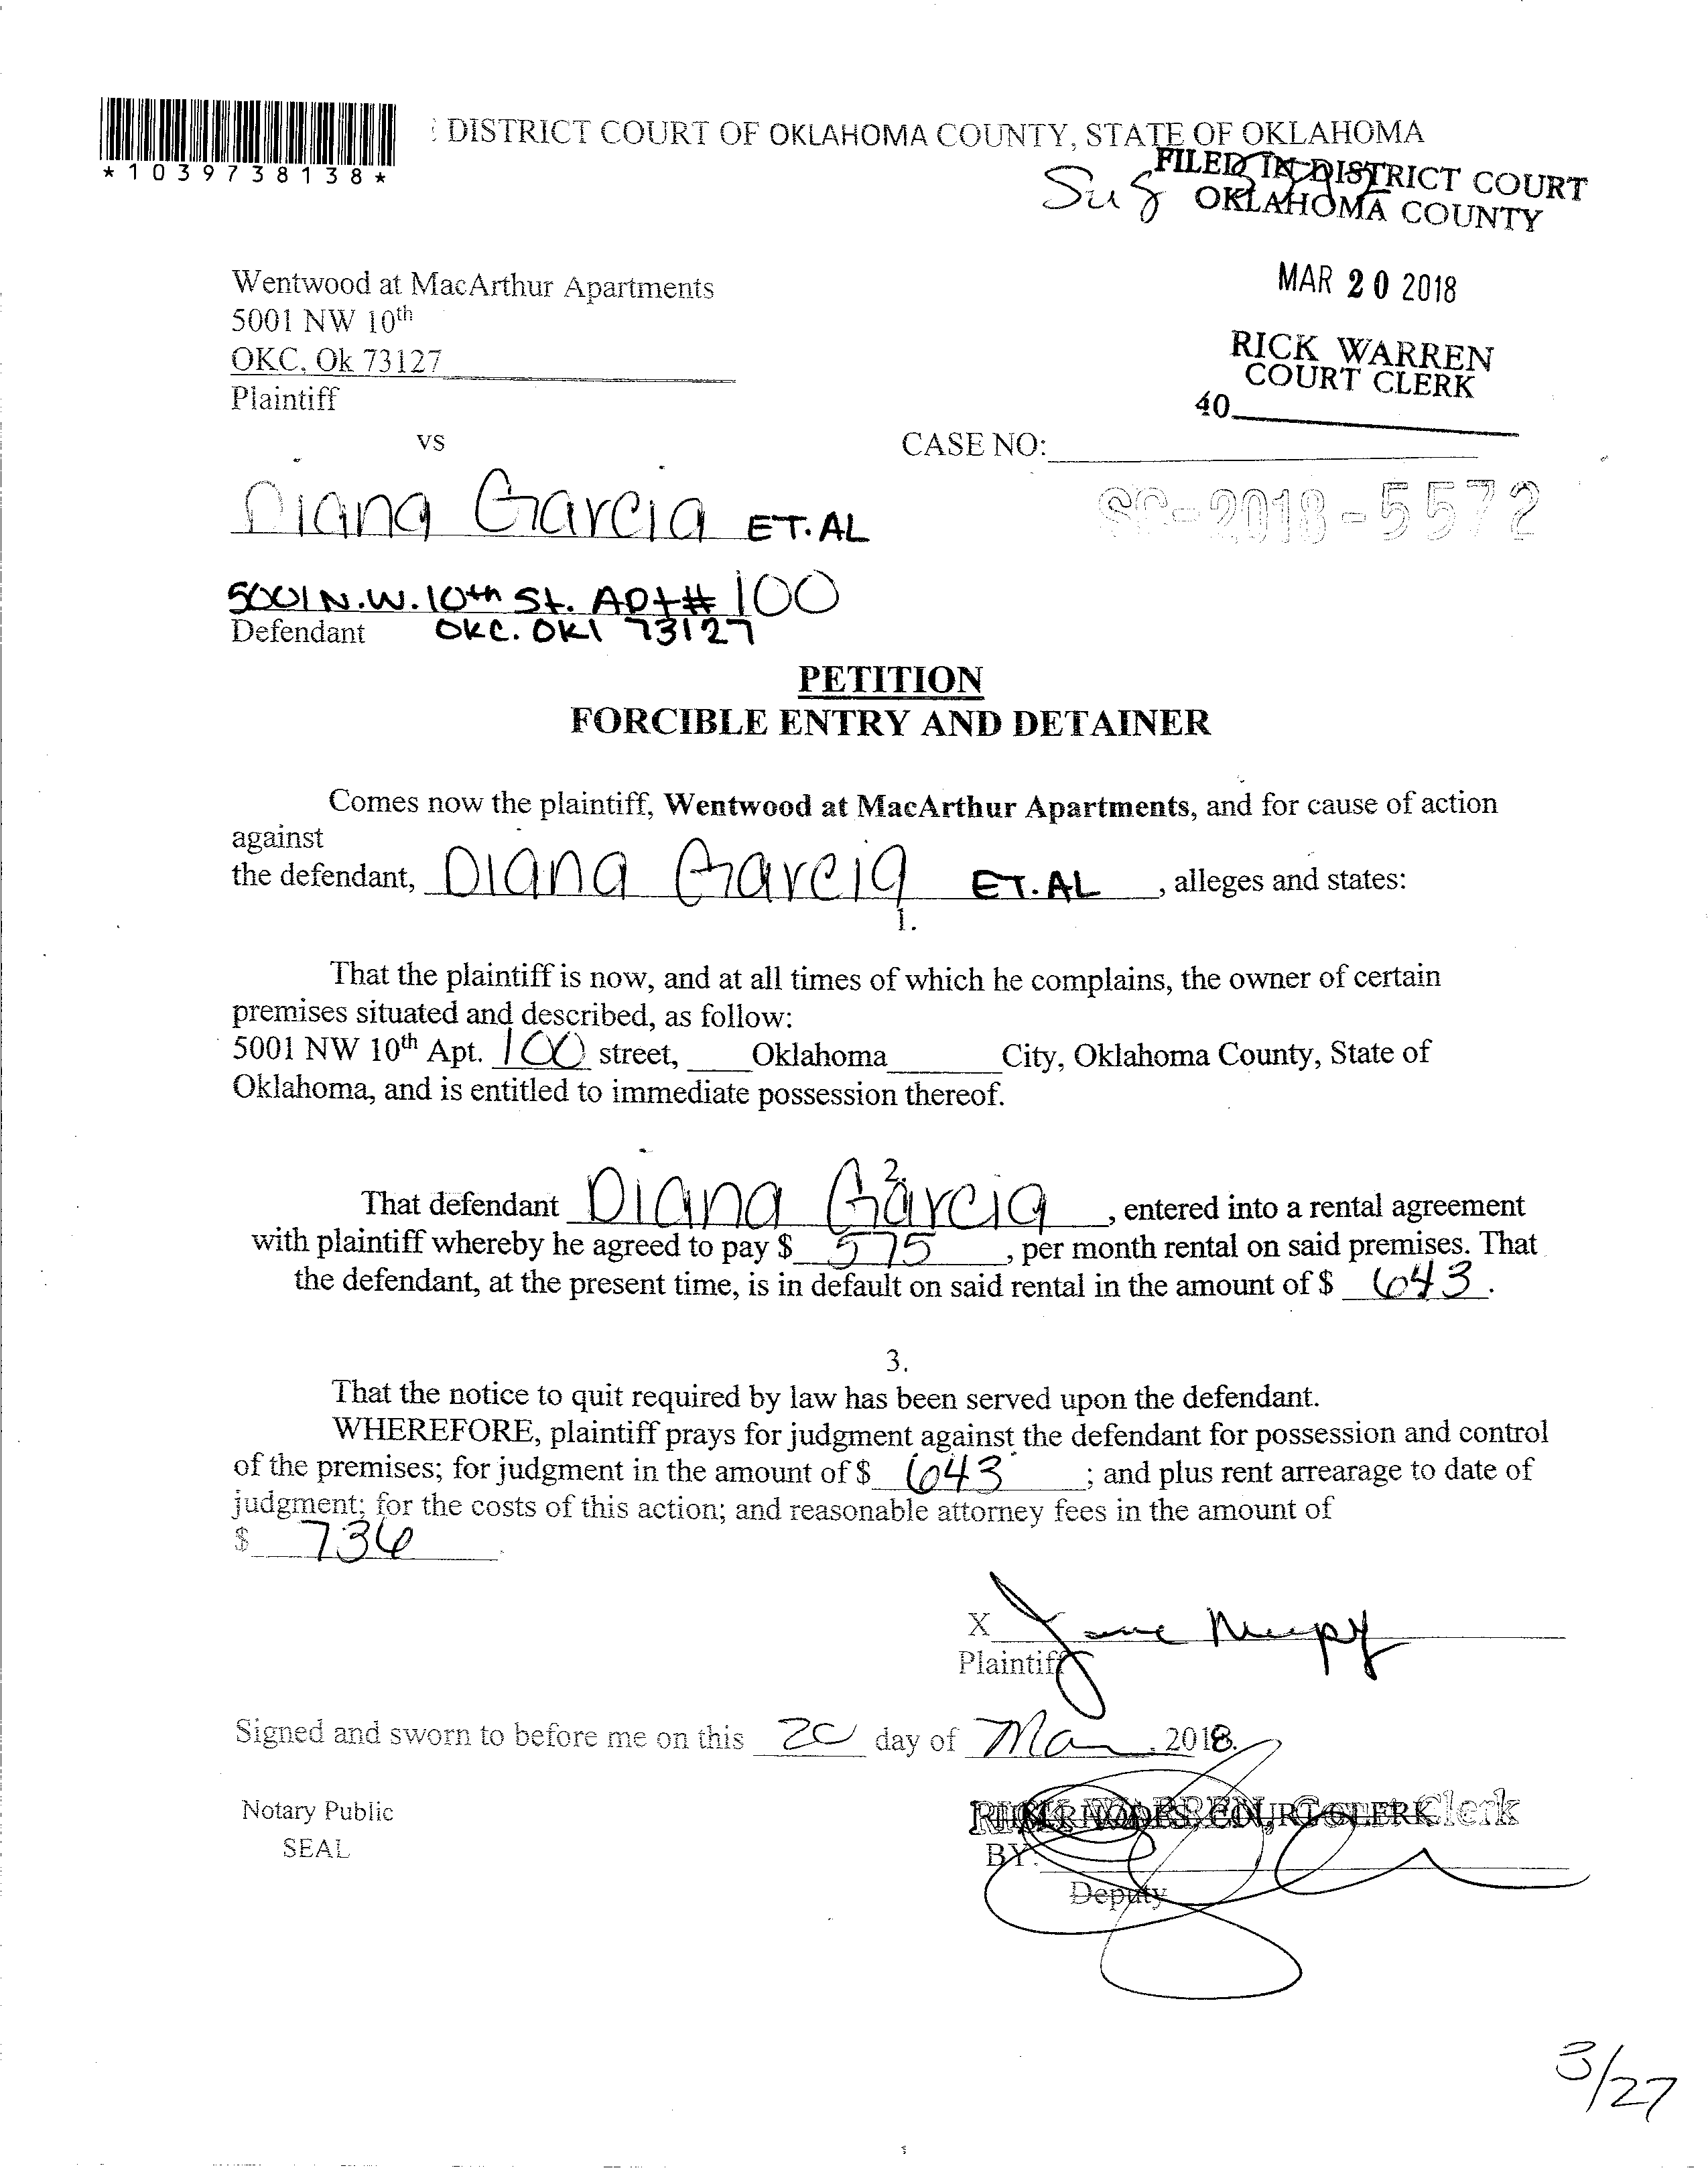 : DISTRICT COURT OF OKLAHOMA COUNTY, STATE OF OKLAHOMA
*1039738138*
FILED IN DISTRICT COURT
OKLAHOMA COUNTY
MAR 20 2018
RICK WARREN
COURT CLERK
40
Wentwood at MacArthur Apartments
5001 NW 10th
OKC, Ok 73127
Plaintiff
vs
CASE NO:
SC-2018-5572
Diana Garcia ET.AL
5001 N.W. 10th St. Apt# 100
Defendant OKC. OKl 73127
PETITION
FORCIBLE ENTRY AND DETAINER
Comes now the plaintiff, Wentwood at MacArthur Apartments, and for cause of action
against
the defendant, Diana Garcia ET.AL, alleges and states:
1.
That the plaintiff is now, and at all times of which he complains, the owner of certain
premises situated and described, as follow:
5001 NW 10th Apt. 100 street, Oklahoma City, Oklahoma County, State of
Oklahoma, and is entitled to immediate possession thereof.
2.
That defendant Diana Garcia, entered into a rental agreement
with plaintiff whereby he agreed to pay $ 575, per month rental on said premises. That
the defendant, at the present time, is in default on said rental in the amount of $ 643.
3.
That the notice to quit required by law has been served upon the defendant.
WHEREFORE, plaintiff prays for judgment against the defendant for possession and control
of the premises; for judgment in the amount of $ 643; and plus rent arrearage to date of
judgment; for the costs of this action; and reasonable attorney fees in the amount of
$ 736
X
Plaintiff
Signed and sworn to before me on this 20 day of Mar, 2018.
Notary Public
SEAL
BY:
Deputy
3/27